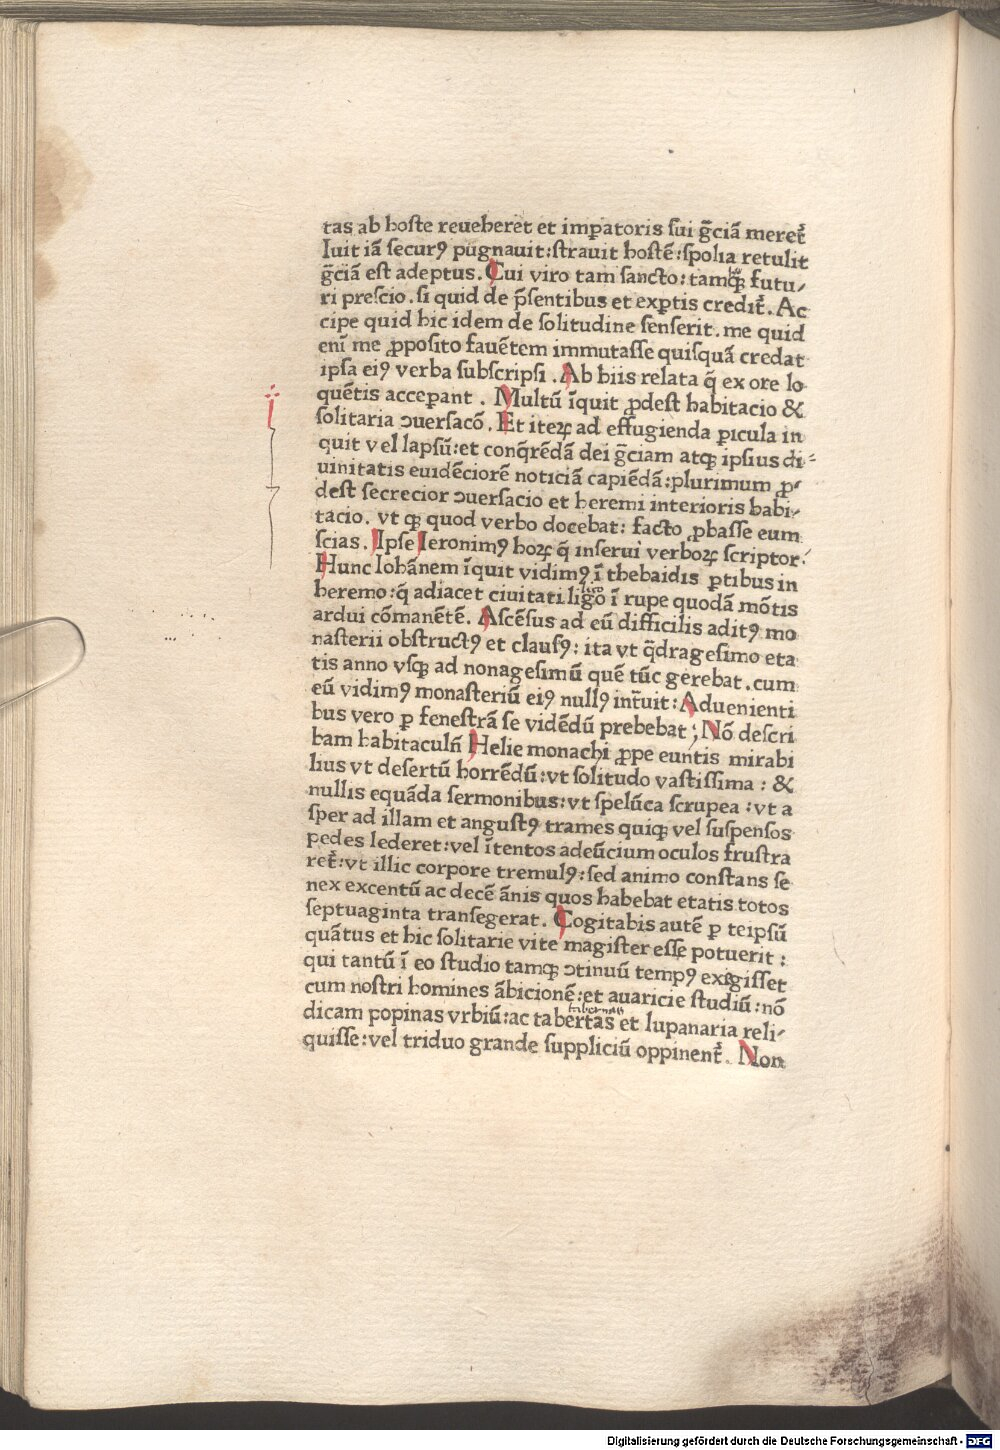 tas ab hoſte reueheret et imꝑatoris ſui gr̄ciā meret᷑
Iuit iā ſecurꝯ pugnauit:ſtrauit hoſtē:ſpolia retulit
gr̄ciā eſt adeptus. Cui viro tam ſancto: tamqꝫ futu⸗
ri preſcio. ſi quid de p̄ſentibus et exꝑtis credit᷑. Ac
cipe quid hic idem de ſolitudine ſenſerit. me quid
eni me ꝓpoſito fauētem immutaſſe quiſquā credat
ipſa eiꝯ verba ſubſcripſi. Ab hiis relata q̄ ex ore lo
quētis acceꝑant. Multū īquit ꝓdeſt habitacio &
ſolitaria ↄuerſacō. Et iteꝝ ad effugienda ꝑicula in
quit vel lapſū:et conq̄rēdā dei gr̄ciam atqꝫ ipſius di⸗
uinitatis euidēciorē noticiā capiēdā:plurimum ꝓ⸗
deſt ſecrecior ↄuerſacio et heremi interioris habi⸗
tacio. vt qꝫ quod verbo docebat: facto ꝓbaſſe eum
ſcias. Ipſe Ieronimꝯ hoꝝ q̄ inſerui verboꝝ ſcriptor:
Hunc Iohānem īquit vidimꝯ ī thebaidis ꝑtibus in
heremo:q̄ adiacet ciuitati ligō ī rupe quodā mōtis
lico
ardui cōmanētē. Aſcēſus ad eū difficilis aditꝯ mo
naſterii obſtructꝯ et clauſꝯ: ita vt q̄drageſimo eta
tis anno vſqꝫ ad nonageſimū quē tūc gerebat. cum
eū vidimꝯ monaſteriū eiꝯ nullꝯ int᷑uit: Aduenienti
bus vero ꝑ feneſtrā ſe vidēdū prebebat; Nō deſcri
bam habitaculū Helie monachi ꝓpe euntis mirabi
lius vt deſertū horrēdū:vt ſolitudo vaſtiſſima: &
nullis equāda ſermonibus:vt ſpelūca ſcrupea:vt a
ſper ad illam et anguſtꝯ trames quiqꝫ vel ſuſpenſos
pedes lederet:vel ītentos adeūcium oculos fruſtra
ret᷑:vt illic corpore tremulꝯ:ſed animo conſtans ſe
nex excentū ac decē ānis quos habebat etatis totos
ſeptuaginta tranſegerat. Cogitabis autē ꝑ teipſū
quātus et hic ſolitarie vite magiſter eſſe potuerit:
qui tantū ī eo ſtudio tamqꝫ ↄtinuū tempꝯ exigiſſet
cum noſtri homines ābicionē:et auaricie ſtudiū:nō
dicam popinas vrbiū:ac tabertas et lupanaria reli⸗
tabernas
quiſſe:vel triduo grande ſuppliciū oppinent᷑. Non
Digitalisierung gefördert durch die Deutsche Forschungsgemeinschaft - DFG